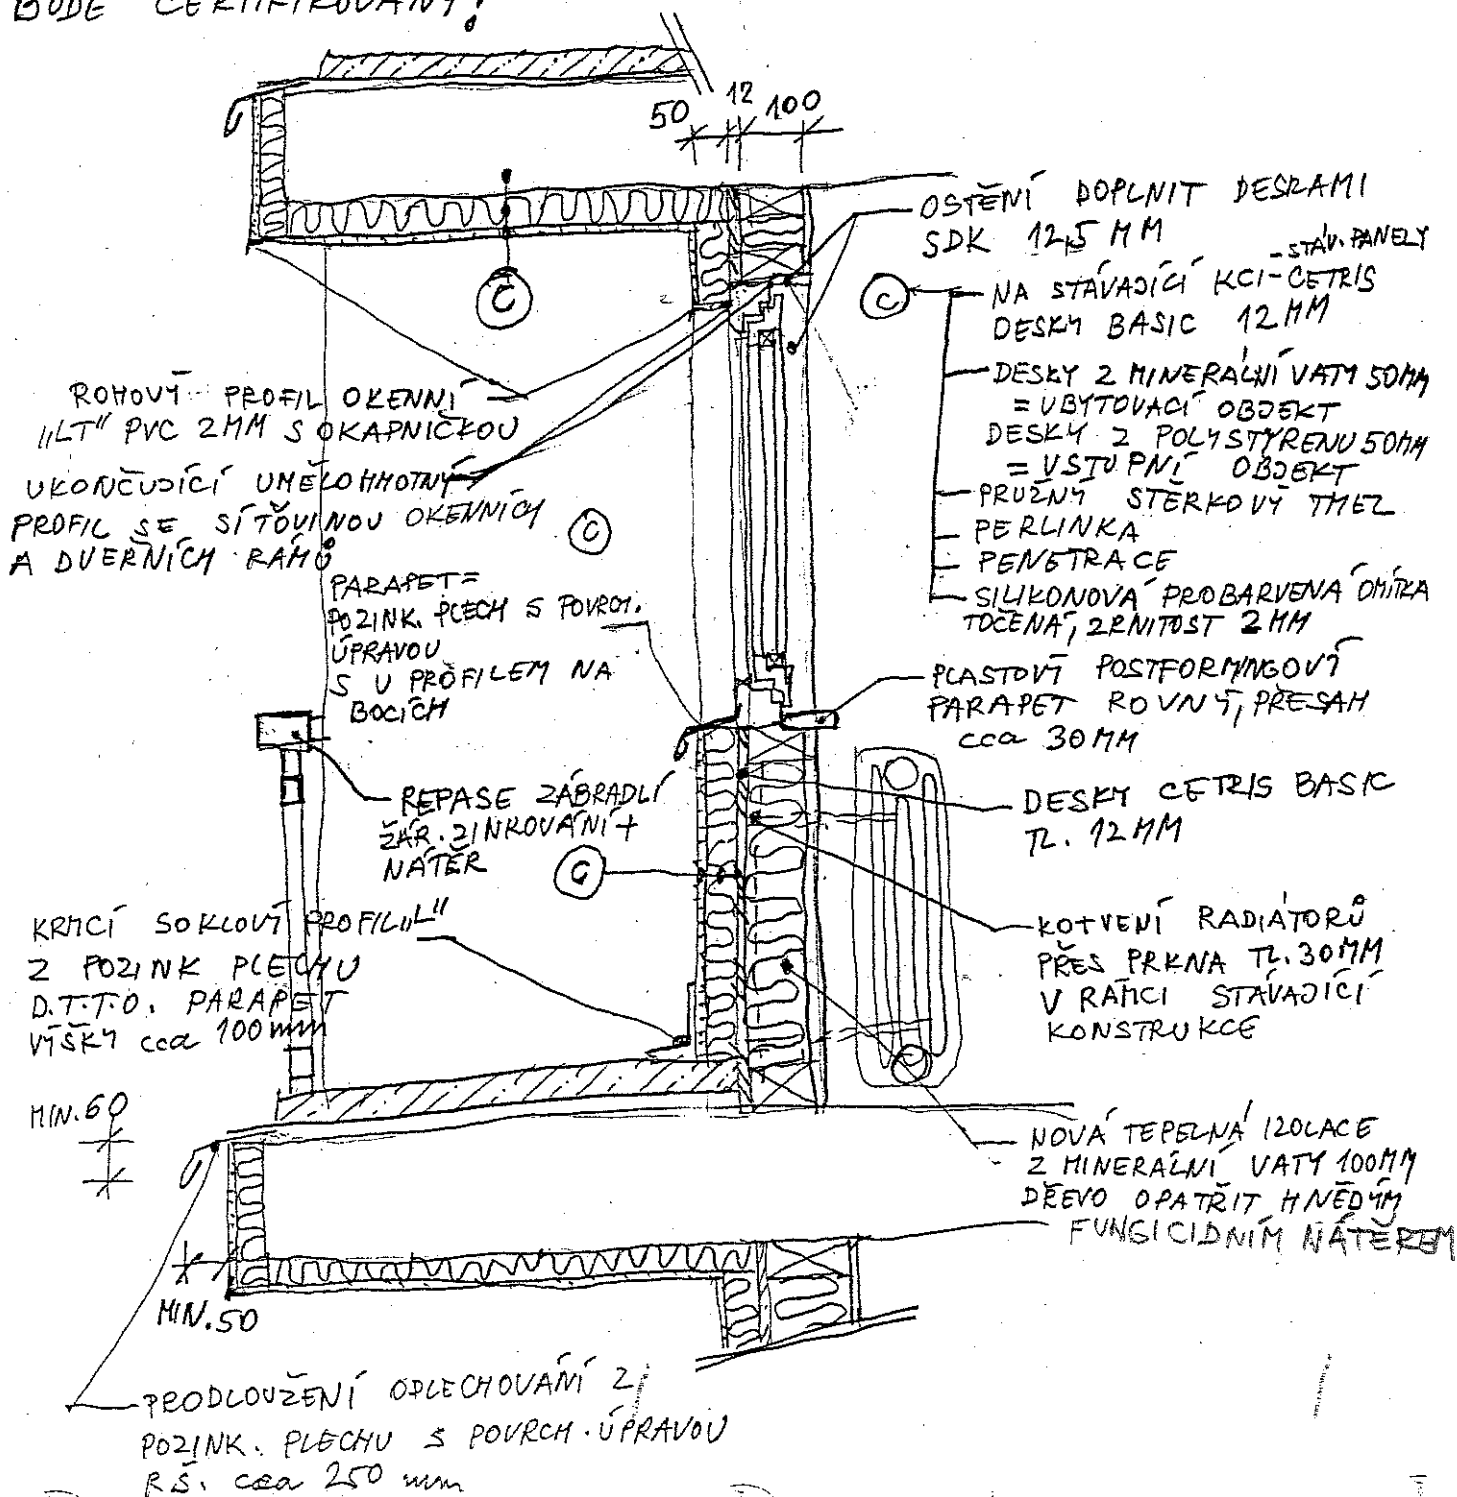 BUDE CERTIFIKOVANÝ!
50
12
100
OSTĚNÍ DOPLNIT DESKAMI
SDK 12,5 MM
C
- STÁV. PANELY
NA STÁVAJÍCÍ KCI - CETRIS
DESKY BASIC 12MM
DESKY Z MINERÁLNÍ VATY 50MM
= UBYTOVACÍ OBJEKT
DESKY Z POLYSTYRENU 50MM
= VSTUPNÍ OBJEKT
PRUŽNÝ STĚRKOVÝ TMEL
PERLINKA
PENETRACE
SILIKONOVÁ PROBARVENÁ OMÍTKA
TOČENÁ, ZRNITOST 2MM
C
ROHOVÝ PROFIL OKENNÍ
"LT" PVC 2MM S OKAPNIČKOU
UKONČUJÍCÍ UMĚLOHMOTNÝ
PROFIL SE SÍŤOVINOU OKENNÍCH
A DVEŘNÍCH RÁMŮ
C
PARAPET =
POZINK. PLECH S POVRCH.
ÚPRAVOU
S U PROFILEM NA
BOCÍCH
PLASTOVÝ POSTFORMINGOVÝ
PARAPET ROVNÝ, PŘESAH
cca 30MM
REPASE ZÁBRADLÍ
ŽÁR. ZINKOVÁNÍ +
NÁTĚR
DESKY CETRIS BASIC
TL. 12MM
C
KRYCÍ SOKLOVÝ PROFIL "L"
Z POZINK PLECHU
D.T.T.O. PARAPET
VÝŠKY cca 100mm
KOTVENÍ RADIÁTORŮ
PŘES PRKNA TL. 30MM
V RÁMCI STÁVAJÍCÍ
KONSTRUKCE
MIN. 60
NOVÁ TEPELNÁ IZOLACE
Z MINERÁLNÍ VATY 100MM
DŘEVO OPATŘIT HNĚDÝM
FUNGICIDNÍM NÁTĚREM
MIN. 50
PRODLOUŽENÍ OPLECHOVÁNÍ Z
POZINK. PLECHU S POVRCH. ÚPRAVOU
R.Š. cca 250 mm